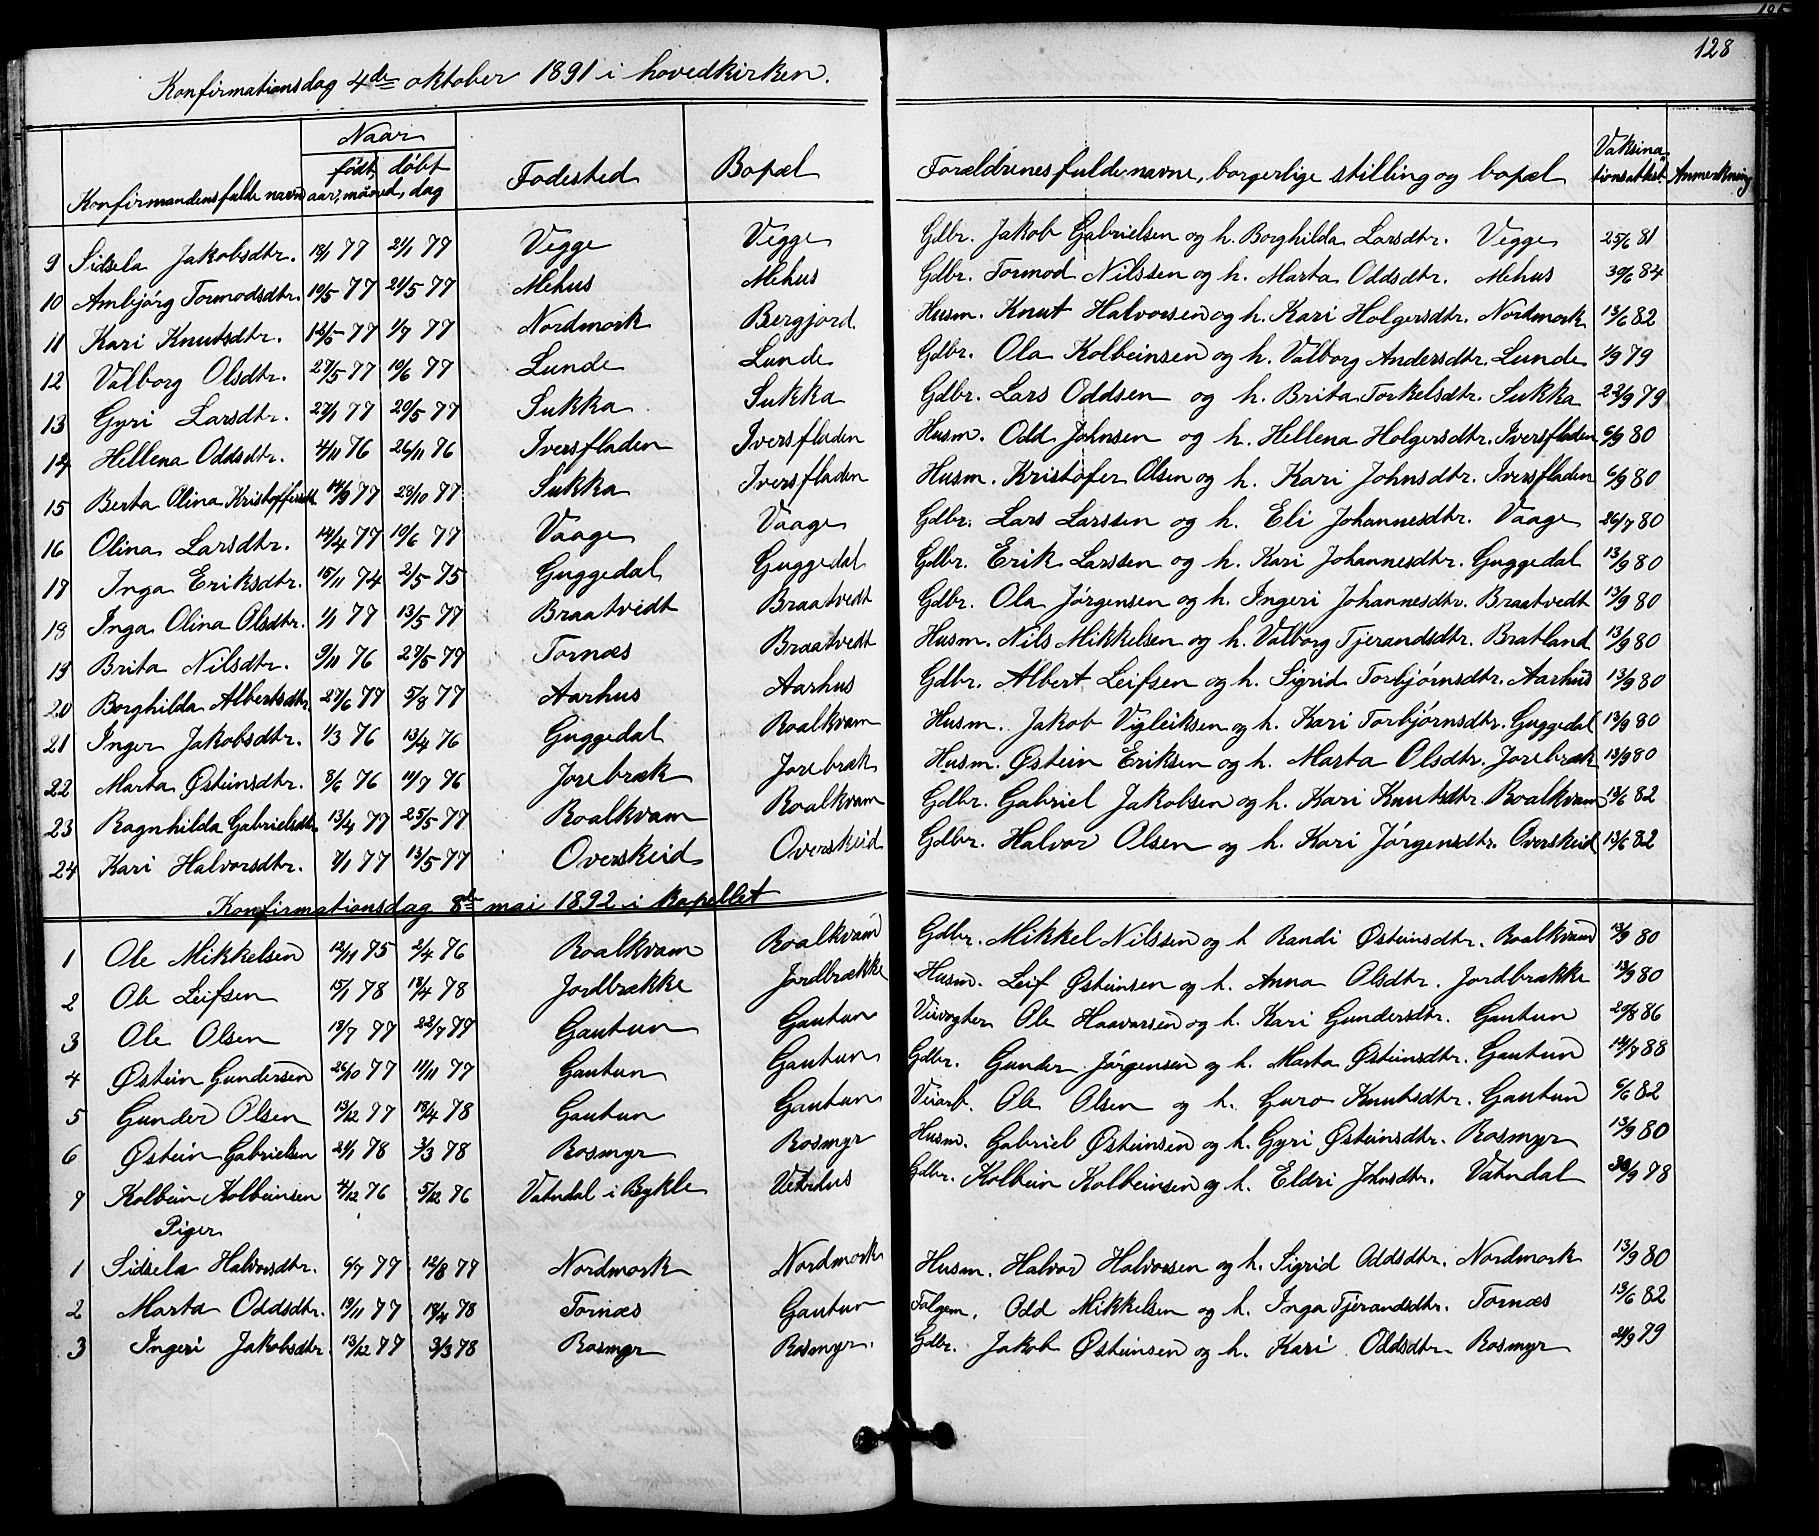 128
Konfirmationsdag 4de oktober 1891 i hovedkirken.
Konfirmandens fulde navn | Naar født, døbt aar, måned, dag | Fødested | Bopæl | Forældrenes fulde navne, borgerlige stilling og bopæl | Vaksinationsattest | Anmerkning
9 Sidsela Jakobsdtr. 18/1 77 21/1 77 Vegge Vegge Gdbr. Jakob Gabrielsen og h. Borghilda Larsdtr. Vegge 25/6 81
10 Ambjørg Tormodsdtr. 19/5 77 21/5 77 Mehus Mehus Gdbr. Tormod Nilssen og h. Marta Oddsdtr. Mehus 30/6 84
11 Kari Knutsdtr. 12/5 77 1/7 77 Nordmork Bergjord. Husm. Knut Halvorsen og h. Kari Holgersdtr. Nordmork 13/6 82
12 Valborg Olsdtr. 27/5 77 10/6 77 Lunde Lunde Gdbr. Ola Kolbeinsen og h. Valborg Andersdtr. Lunde 1/9 79
13 Gyri Larsdtr. 27/1 77 20/5 77 Sukka Sukka Gdbr. Lars Oddsen og h. Brita Torkelsdtr. Sukka 22/9 79
14 Hellena Oddsdtr. 4/11 76 26/11 76 Iversfladen Iversfladen Husm. Odd Johnsen og h. Hellena Holgersdtr. Iversfladen 6/9 80
15 Berta Olina Kristoffersdt 14/9 77 29/10 77 Sukka Iversfladen Husm. Kristofer Olsen og h. Kari Johnsdtr. Iversfladen 6/9 80
16 Olina Larsdtr. 14/4 77 10/6 77 Vaage Vaage Gdbr. Lars Larssen og h. Eli Johannesdtr. Vaage 26/7 80
17 Inga Eriksdtr. 15/11 74 2/5 75 Guggedal Guggedal Gdbr. Erik Larssen og h. Kari Johannesdtr. Guggedal 13/9 80
18 Inga Olina Olsdtr. 1/1 77 13/5 77 Braatvedt Braatvedt Gdbr. Ola Jørgensen og h. Ingeri Johannesdtr. Braatvedt 13/9 80
19 Brita Nilsdtr. 9/11 76 27/5 77 Tornæs Braatvedt Husm. Nils Mikkelsen og h. Valborg Tjerandsdtr. Bratland 13/9 80
20 Borghilda Albertsdtr 27/6 77 5/8 77 Aarhus Aarhus Gdbr. Albert Leifsen og h. Sigrid Torbjørnsdtr. Aarhus 13/9 80
21 Inger Jakobsdtr. 1/3 76 13/4 76 Guggedal Roalkvam Husm. Jakob Vigleiksen og h. Kari Torbjørnsdtr. Guggedal 13/9 80
22 Marta Østeinsdtr. 8/6 76 11/7 76 Jorebræk Jorebræk Husm. Østein Eriksen og h. Marta Olsdtr. Jorebræk 13/9 80
23 Ragnhilda Gabrielsdtr 13/4 77 25/5 77 Roalkvam Roalkvam Gdbr. Gabriel Jakobsen og h. Kari Knutsdtr. Roalkvam 13/6 82
24 Kari Halvorsdtr. 7/1 77 13/5 77 Overskeid Overskeid Gdbr. Halvor Olsen og h. Kari Jørgensdtr. Overskeid 13/6 82
Konfirmationsdag 8de mai 1892 i kapellet
1 Ole Mikkelsen 12/11 75 2/4 76 Roalkvam Roalkvam Gdbr. Mikkel Nilssen og h Randi Østeinsdtr. Roalkvam 13/9 80
2 Ole Leifsen 15/1 78 18/4 78 Jordbrække Jordbrække Husm. Leif Østeinsen og h. Anna Olsdtr. Jordbrække 13/9 80
3 Ole Olsen 19/7 77 22/7 77 Gautun Gautun Veivogter Ole Haavarsen og h. Kari Gundersdtr. Gautun 20/8 86
4 Østein Gundersen 26/10 77 11/11 77 Gautun Gautun Gdbr. Gunder Jørgensen og h. Marta Østeinsdtr. Gautun 14/7 88
5 Gunder Olsen 13/12 77 18/4 78 Gautun Gautun Veiarb. Ole Olsen og h. Guro Knutsdtr. Gautun 6/6 82
6 Østein Gabrielsen 21/1 78 3/3 78 Rosmyr Rosmyr Husm. Gabriel Østeinsen og h. Gyri Østeinsdtr. Rosmyr 13/9 80
7 Kolbein Kolbeinsen 4/12 76 5/12 76 Vatndal i Bykle Gdbr. Kolbein Kolbeinsen og h. Eldri Johnsdtr. Vatndal 30/9 78
Piger
1 Sidsela Halvorsdtr. 6/7 77 12/8 77 Nordmork Nordmork Husm. Halvor Halvorsen og h. Sigrid Oddsdtr. Nordmork 13/9 80
2 Marta Oddsdtr. 19/11 77 18/4 78 Tornæs Gautun Folgem. Odd Mikkelsen og h. Inga Tjerandsdtr. Tornæs 13/6 82
3 Ingeri Jakobsdtr. 13/12 77 3/3 78 Rosmyr Rosmyr. Gdbr. Jakob Østeinsen og h. Kari Oddsdtr. Rosmyr 21/9 79